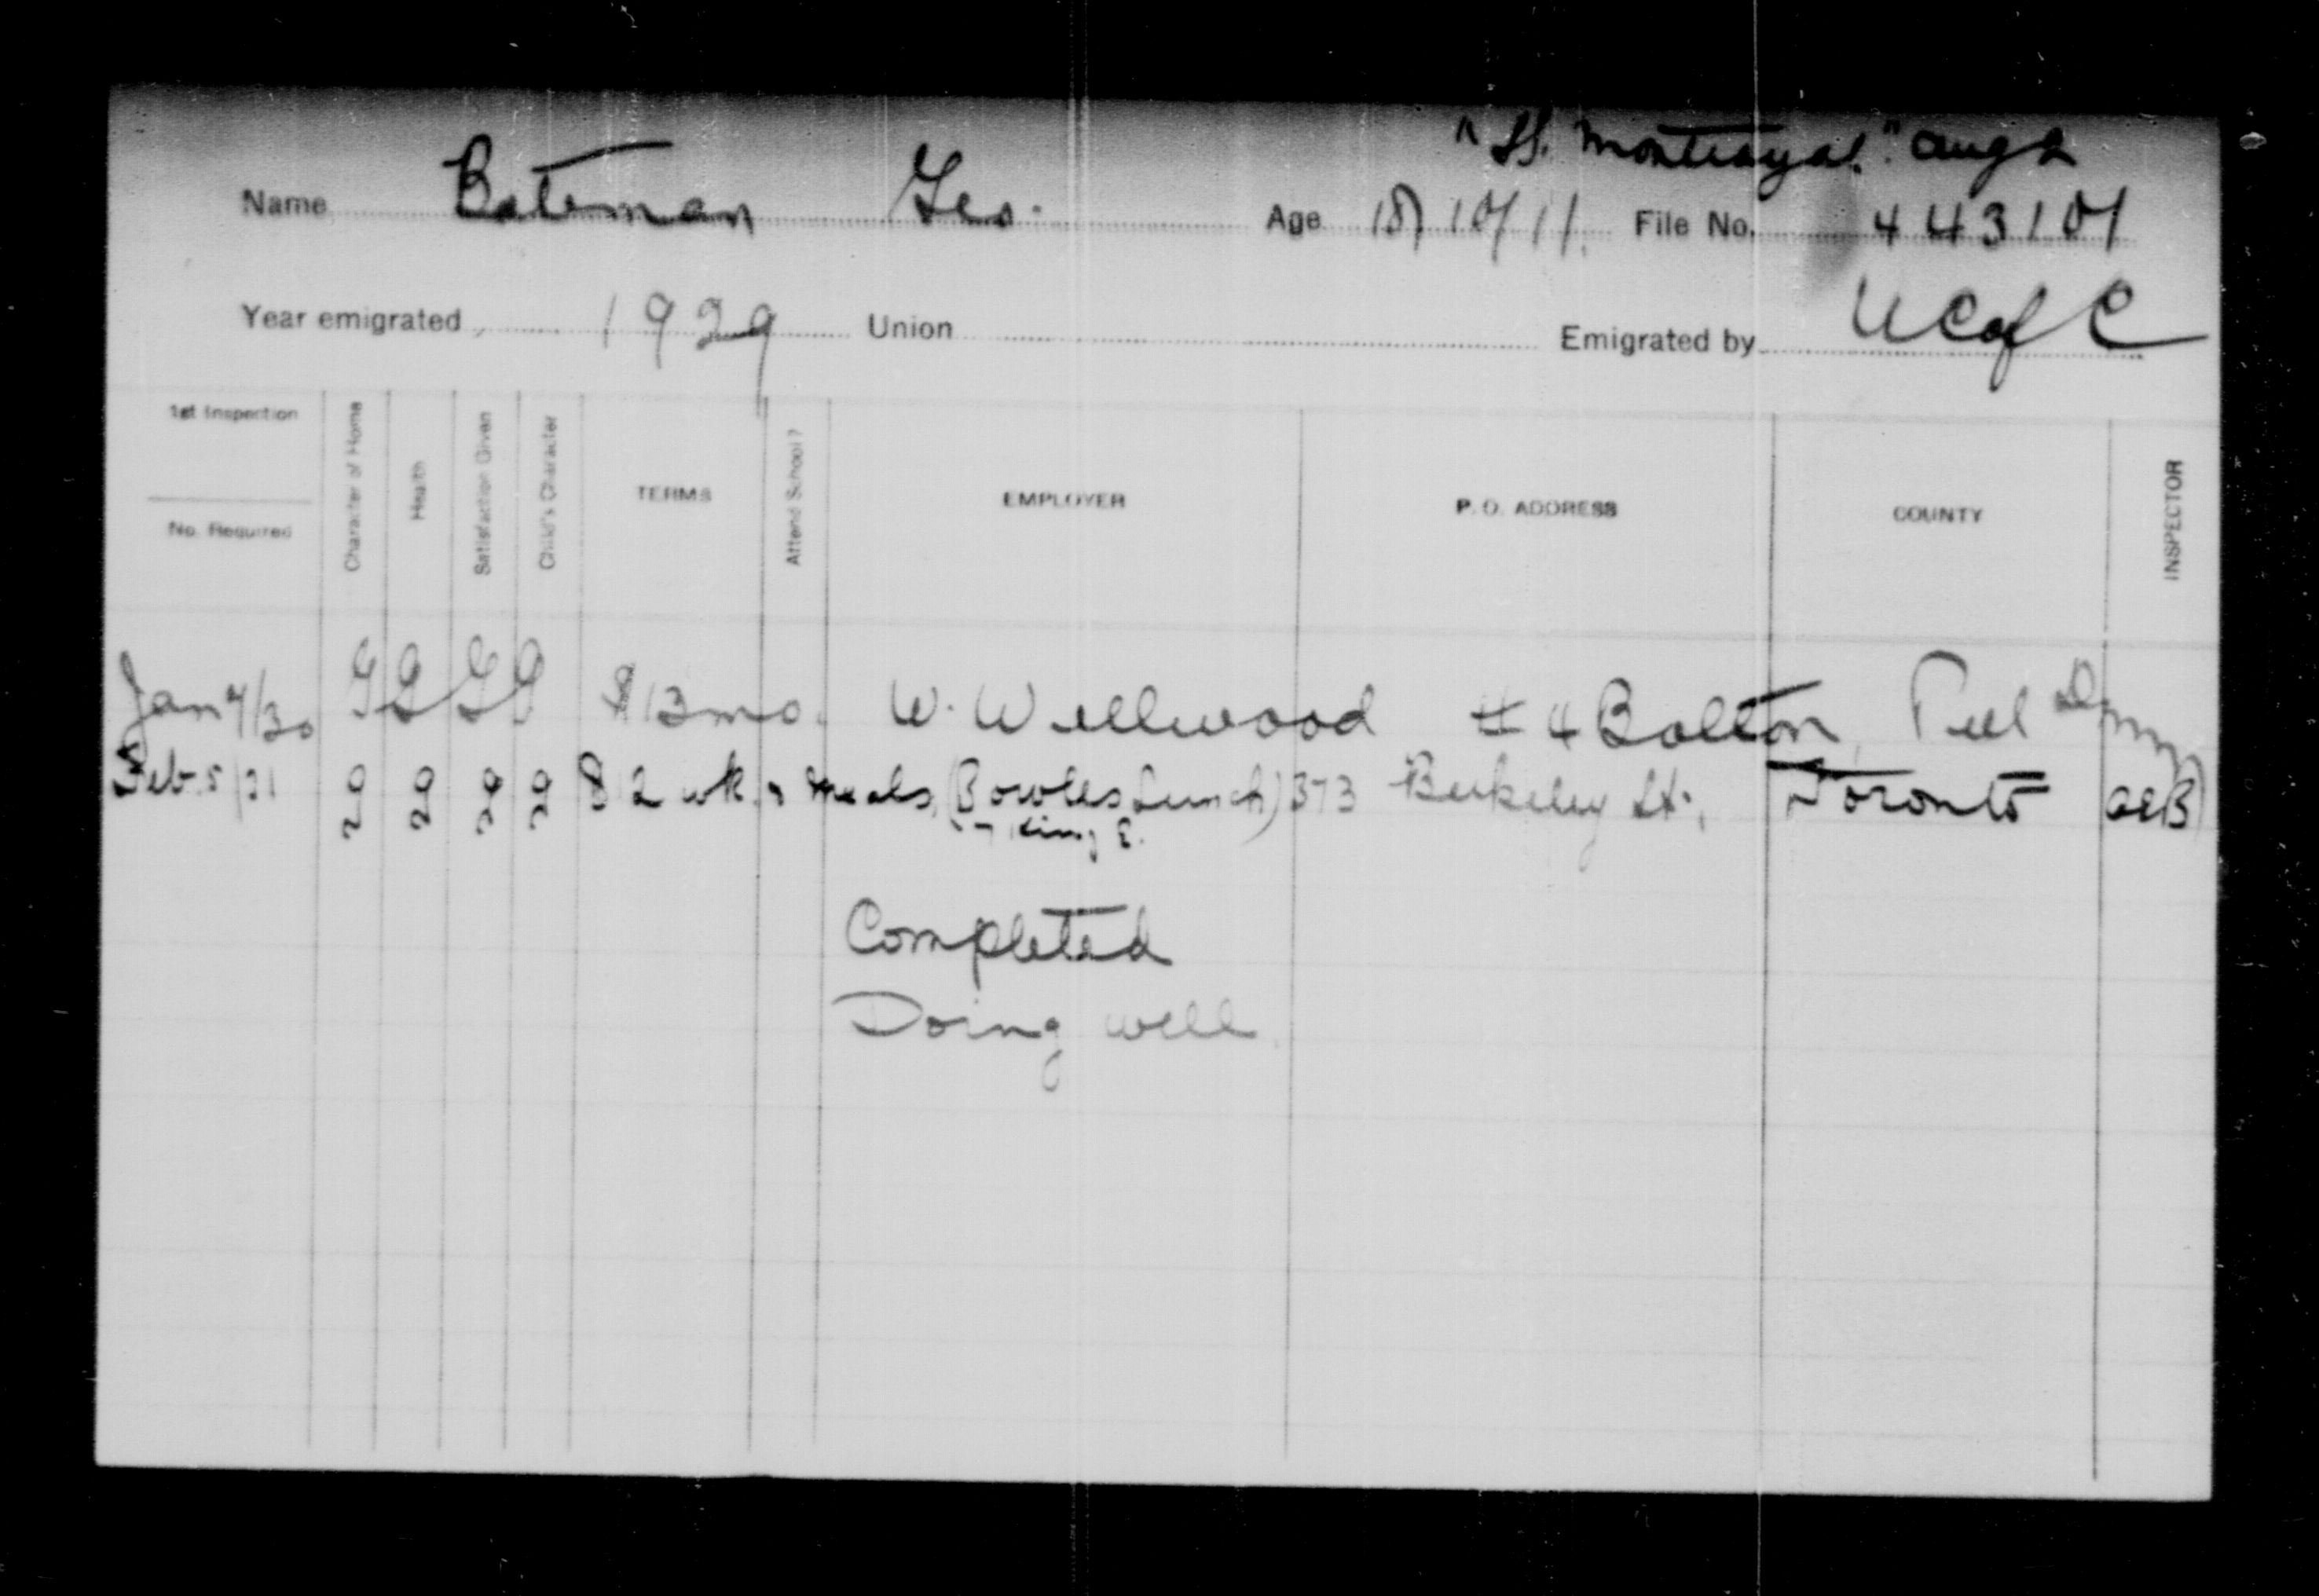 "SS. Montroyal." Aug 2
Name Bateman Geo. Age 18 File No. 443104
Year emigrated 1929 Union Emigrated by UC of C
1st Inspection
No. Required
Character of Home
Health
Satisfaction Given
Child's Character
TERMS
Attend School?
EMPLOYER
P. O. ADDRESS
COUNTY
INSPECTOR
Jan 4/30 G G G G $13 mo. W. Wellwood #4 Bolton, Peel
Feb 5/31 $ 2 wk. & meals, (Bowles Lunch) 373 Berkeley St., Toronto
King E.
Completed
Doing well